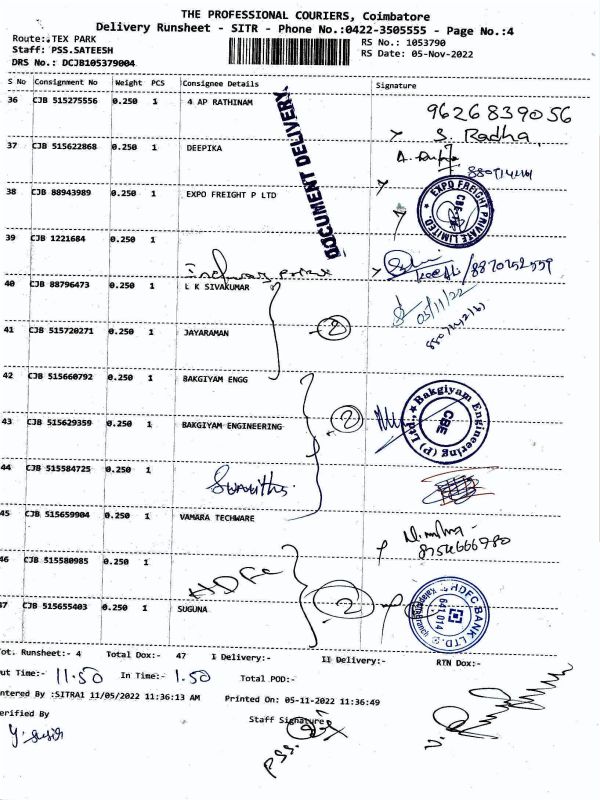 THE PROFESSIONAL COURIERS, Coimbatore
Delivery Runsheet - SITR - Phone No.:0422-3505555 - Page No.:4
Route:.TEX PARK
RS No.: 1053790
Staff: PSS.SATEESH
RS Date: 05-Nov-2022
DRS No.: DCJB105379004
S No Consignment No Weight PCS Consignee Details Signature
36 CJB 515275556 0.250 1 4 AP RATHINAM
9626839056
S. Radha
DOCUMENT DELIVERY.
37 CJB 515622868 0.250 1 DEEPIKA
38 CJB 88943989 0.250 1 EXPO FREIGHT P LTD
EXPO FREIGHT PRIVATE LIMITED.
CBE
39 CJB 1221684 0.250 1
8870752559
40 CJB 88796473 0.250 1 L K SIVAKUMAR
05/11/22
41 CJB 515720271 0.250 1 JAYARAMAN
2
42 CJB 515660792 0.250 1 BAKGIYAM ENGG
Bakgiyam Engineering (P) Ltd.,
CBE
43 CJB 515629359 0.250 1 BAKGIYAM ENGINEERING
2
44 CJB 515584725 0.250 1
45 CJB 515659904 0.250 1 VAMARA TECHWARE
8754666980
46 CJB 515580985 0.250 1
HDFC
47 CJB 515655403 0.250 1 SUGUNA
2
HDFC BANK LTD
641 014
Tot. Runsheet:- 4 Total Dox:- 47 I Delivery:- II Delivery:- RTN Dox:-
Out Time:- 11.50 In Time:- 1.50 Total POD:-
Entered By :SITRA1 11/05/2022 11:36:13 AM Printed On: 05-11-2022 11:36:49
Verified By
Staff Signature
PSS.